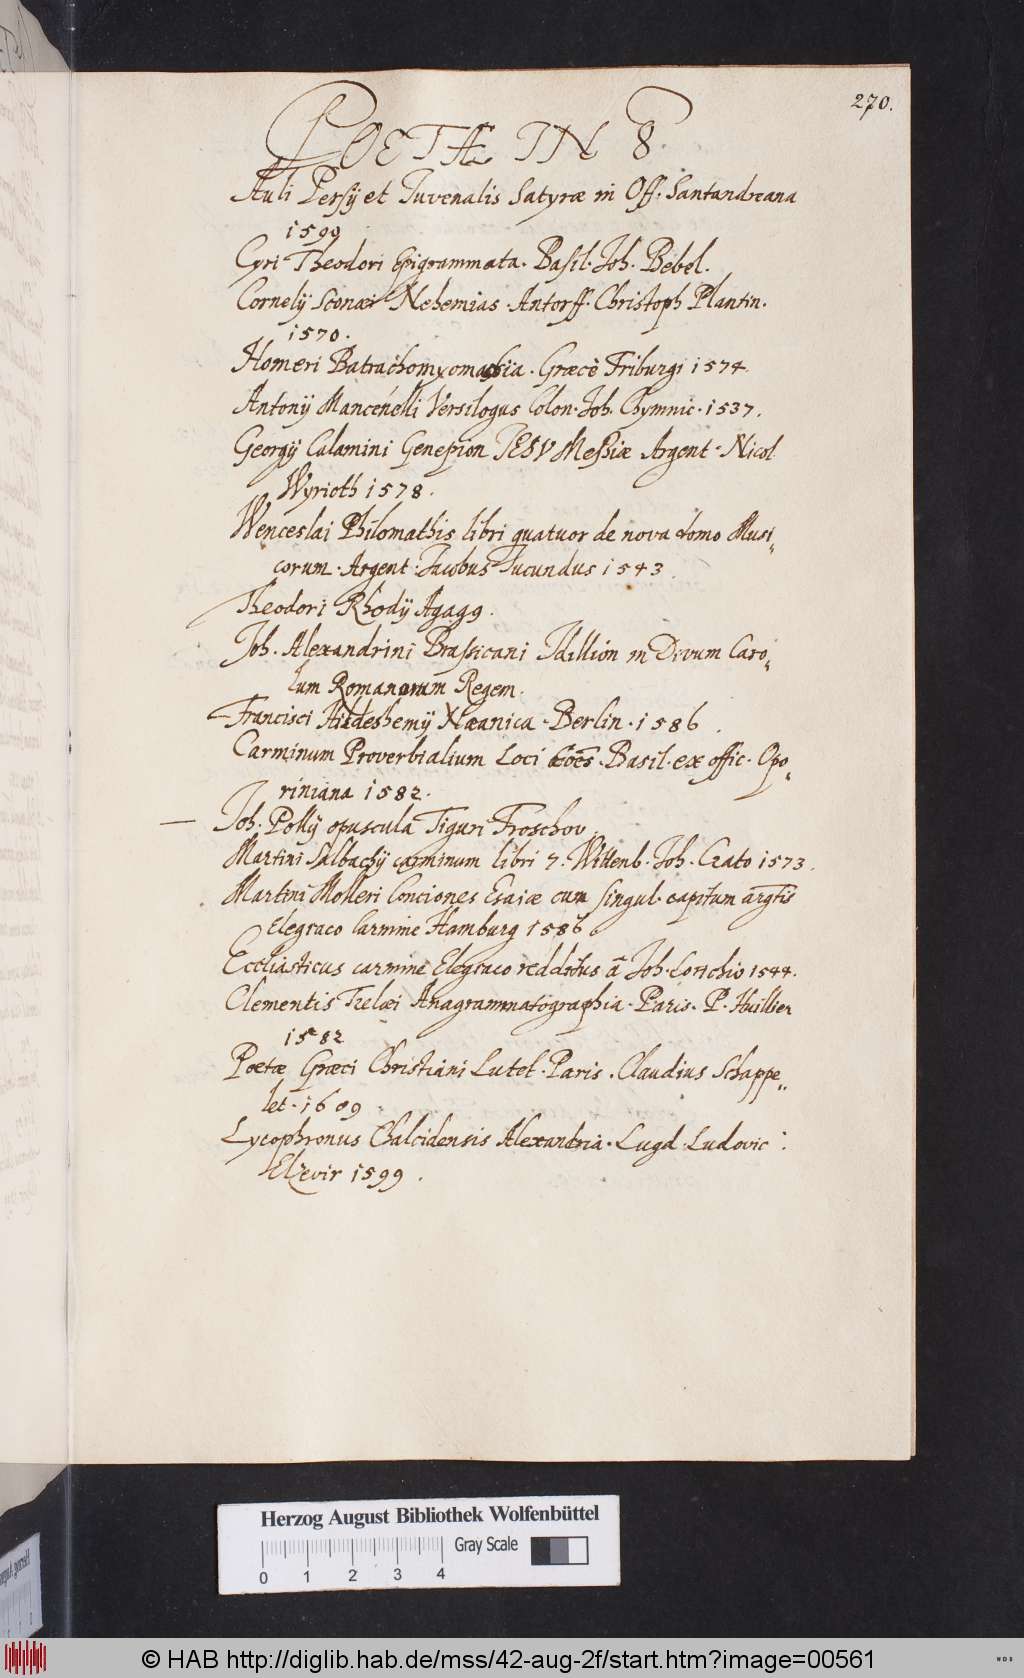 270.
POETÆ IN 8
Auli Persij et Juvenalis Satyræ in Off. Santandreana
1599
Cyri Theodori Epigrammata. Basil. Joh. Bebel.
Cornelij Sconæi Nehemias. Antorff. Christoph Plantin.
1570.
Homeri Batrachomyomachia. Græcè Friburgi 1574
Antonij Mancenelli Versilogus Colon. Joh. Gymnic. 1537.
Georgij Calamini Genesion JESV Messiæ Argent. Nicol
Wyrioth 1578.
Wenceslai Philomathis libri quatuor de nova domo Musi,,
corum. Argent. Jacobus Jucundus 1543.
Theodori Rhodij Agag9.
Joh. Alexandrini Brassicani Idillion in Divum Caro,,
lum Romanorum Regem.
Francisci Hildeshemij Næanica. Berlin. 1586.
Carminum Proverbialium Loci cōes. Basil. ex offic. Opo,,
riniana 1582.
Joh. Pollij opuscula Tiguri Froschov.
Martini Salbachij carminum libri 7. Wittenb. Joh. Crato 1573.
Martini Molleri Conciones Esaiæ cum singul. capitum argtis
Elegiaco Carmine Hamburg 1586
Eccliasticus carmine Elegiaco redditus ā Joh. Lorichio 1544.
Clementis Trelæi Anagrammatographia. Paris. P. Huillier
1582
Poetæ Græci Christiani Lutet. Paris. Claudius Schappe,,
let. 1609
Lycophronus Chalcidensis Alexandria. Lugd. Ludovic:
Elzevir 1599.
Herzog August Bibliothek Wolfenbüttel
Gray Scale
0 1 2 3 4
© HAB http://diglib.hab.de/mss/42-aug-2f/start.htm?image=00561